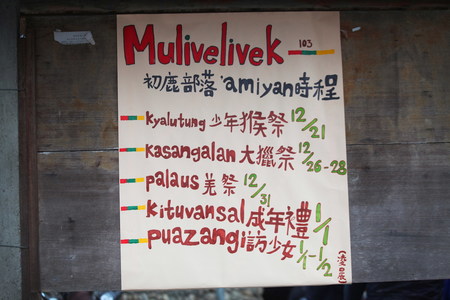 Mulivelivek 103
初鹿部落 'amiyan時程
kyalutung 少年猴祭 12/21
kasangalan 大獵祭 12/26-28
palaus 羌祭 12/31
kituvansal 成年禮 1/1
puazangi 訪少女 1/1-1/2
(凌晨)